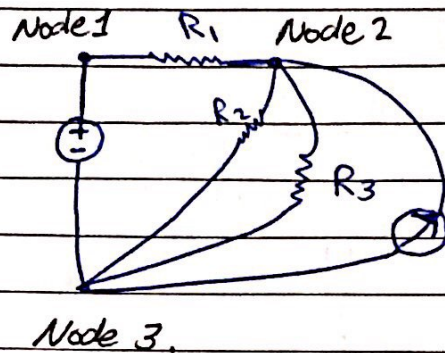 Node 1 R1 Node 2
+
-
R2
R3
Node 3.